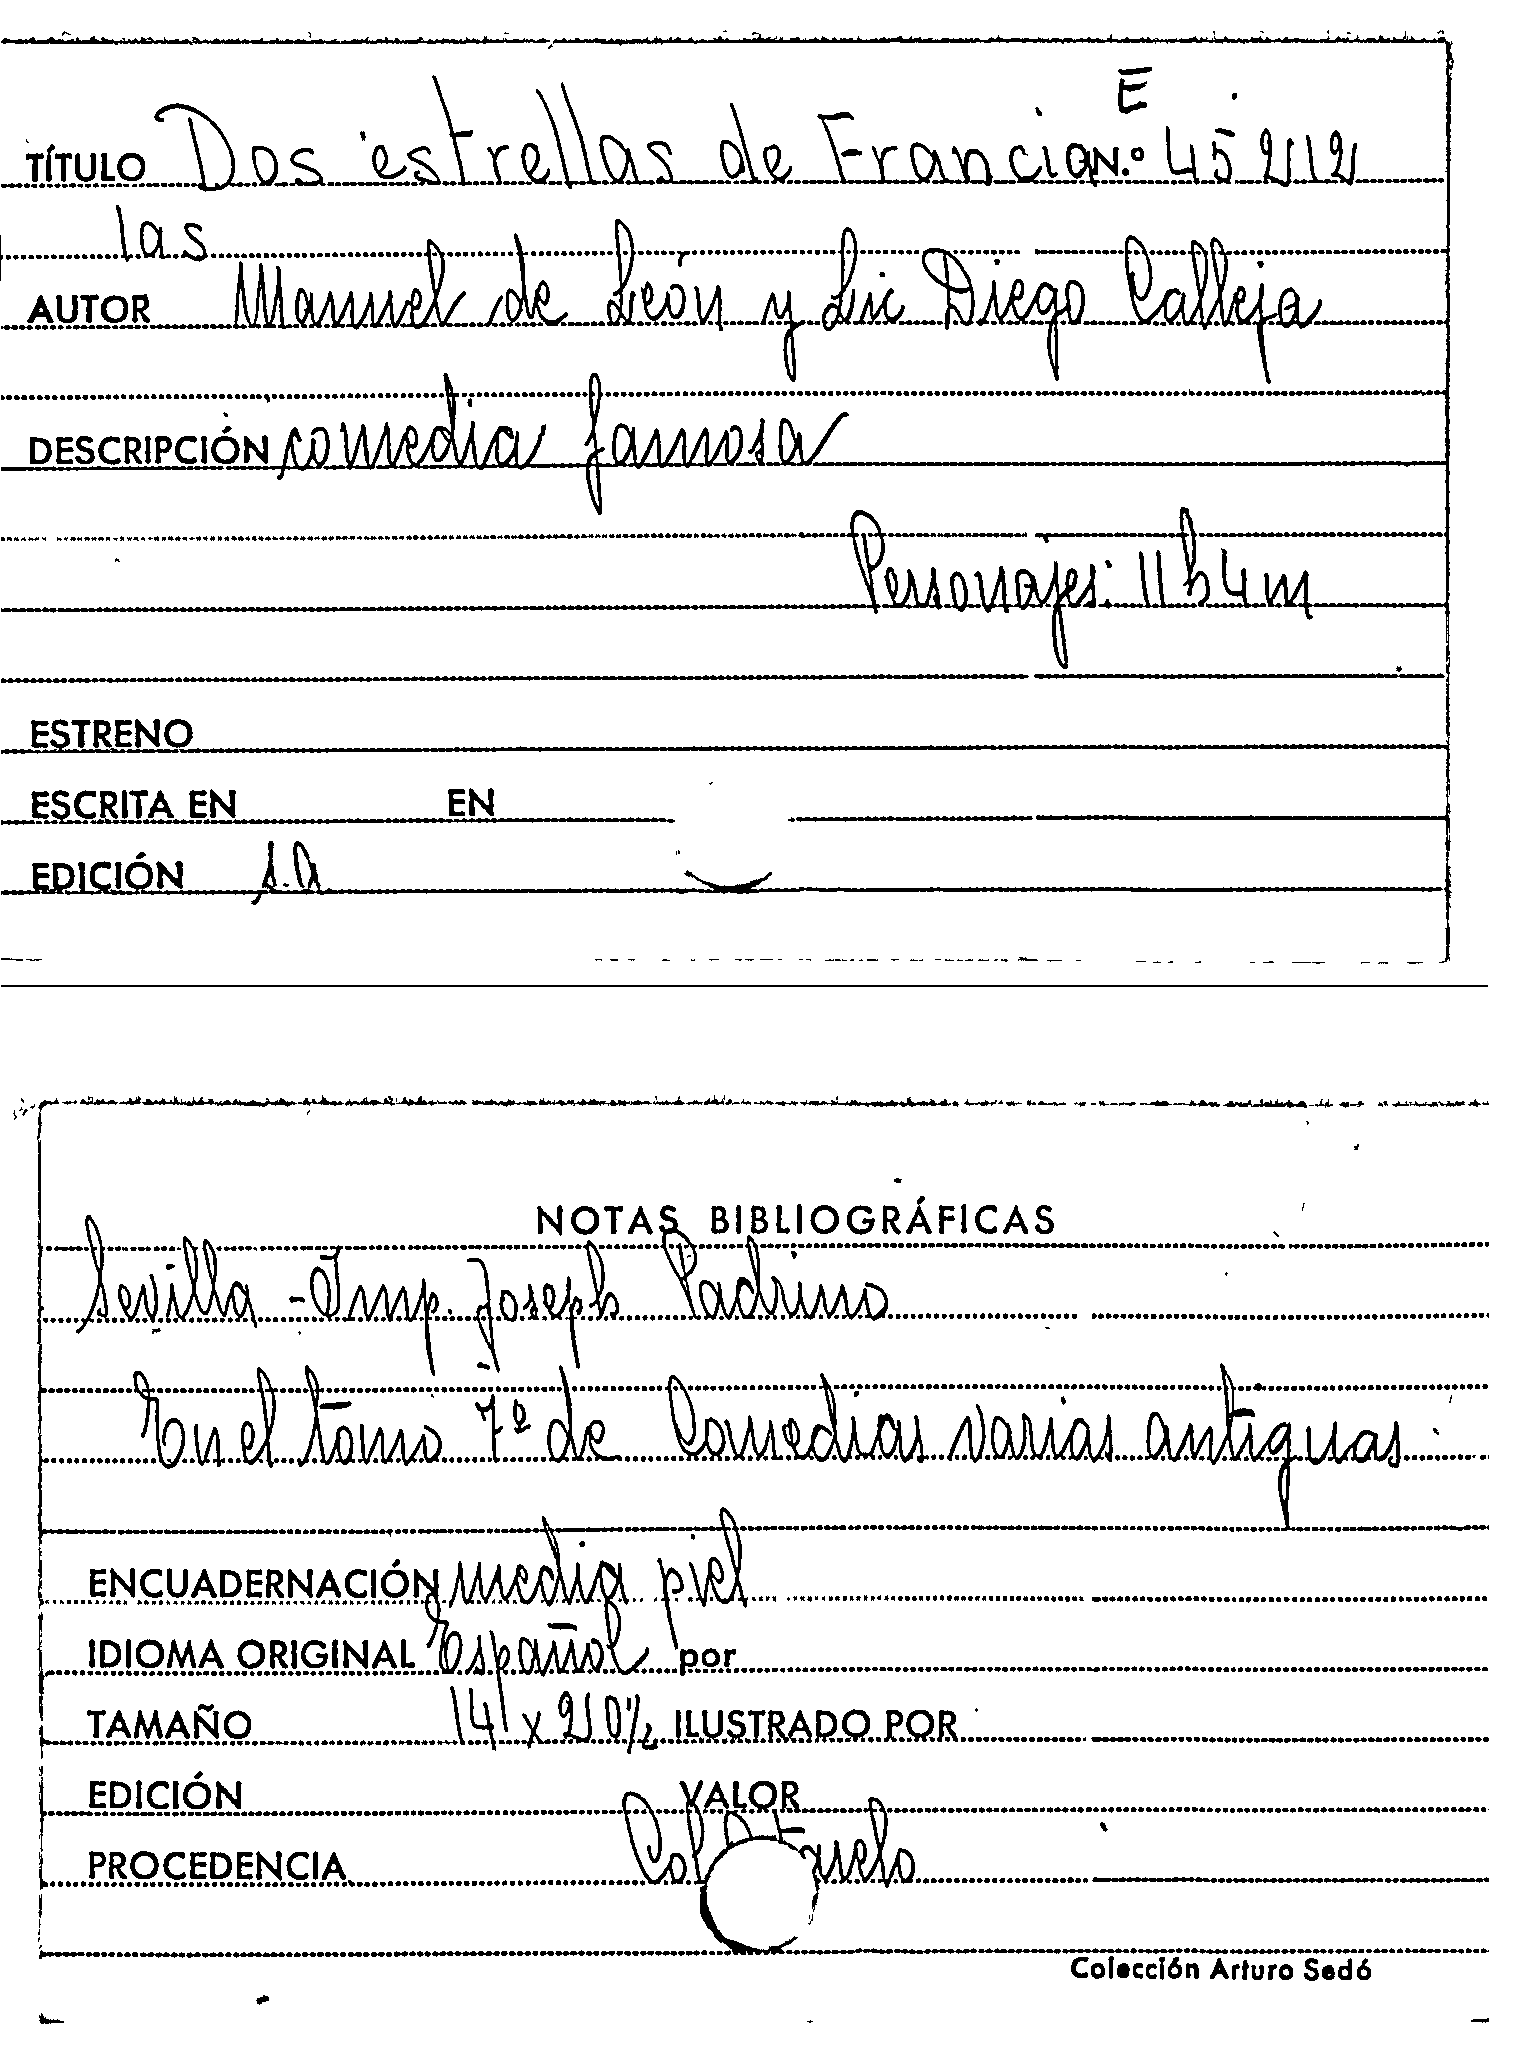 E
TÍTULO Dos estrellas de Francia N.º 45212
las
AUTOR Manuel de León y Lic Diego Calleja
DESCRIPCIÓN comedia famosa
Personajes: 11 h 4 m
ESTRENO
ESCRITA EN EN
EDICIÓN s.a
NOTAS BIBLIOGRÁFICAS
Sevilla - Imp. Joseph Padrino
En el tomo 7º de Comedias varias antiguas.
ENCUADERNACIÓN media piel
IDIOMA ORIGINAL Español por
TAMAÑO 14 x 20 ILUSTRADO POR
EDICIÓN VALOR
PROCEDENCIA Col
Colección Arturo Sedó